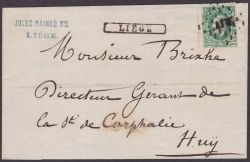 JULES RAINES
LIEGE.
LIÉGE
Monsieur Brixhe
Directeur Gerant de
la Sté de Corphalie
Huÿ